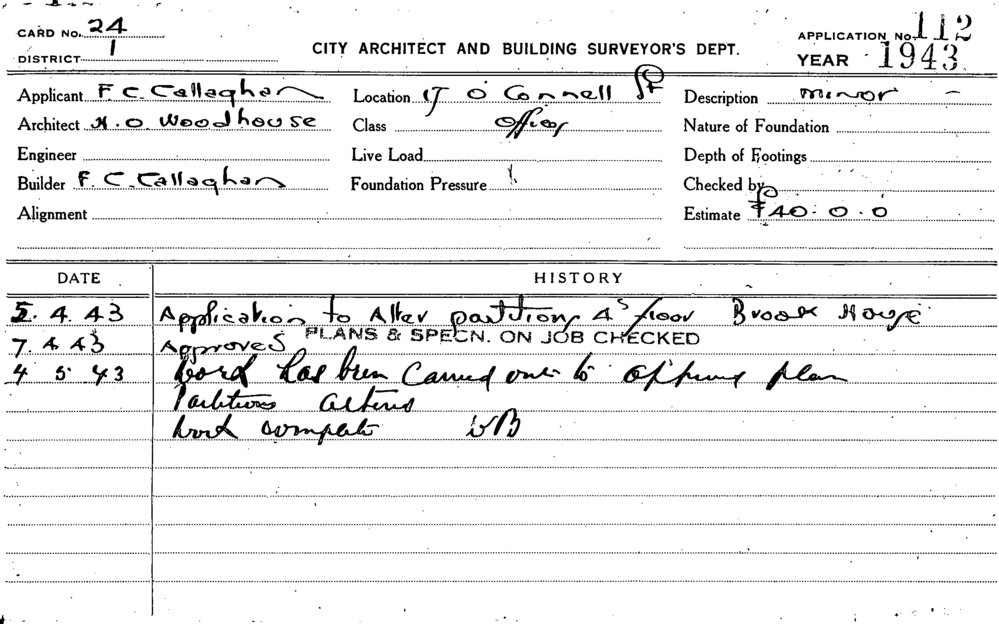 CARD No. 24
DISTRICT 1
CITY ARCHITECT AND BUILDING SURVEYOR'S DEPT.
APPLICATION No. 112
YEAR 1943
Applicant F. C. Callaghan Location 17 O'Connell St Description minor -
Architect H. O. Woodhouse Class Offices Nature of Foundation
Engineer Live Load Depth of Footings
Builder F. C. Callaghan Foundation Pressure Checked by
Alignment Estimate £40.0.0
DATE HISTORY
5. 4. 43 Application to Alter partitions 4 floor Brook House
7. 4. 43 Approved PLANS & SPECN. ON JOB CHECKED
4 5 43 Work has been Carried out to plan
Partitions altered
Work complete WB